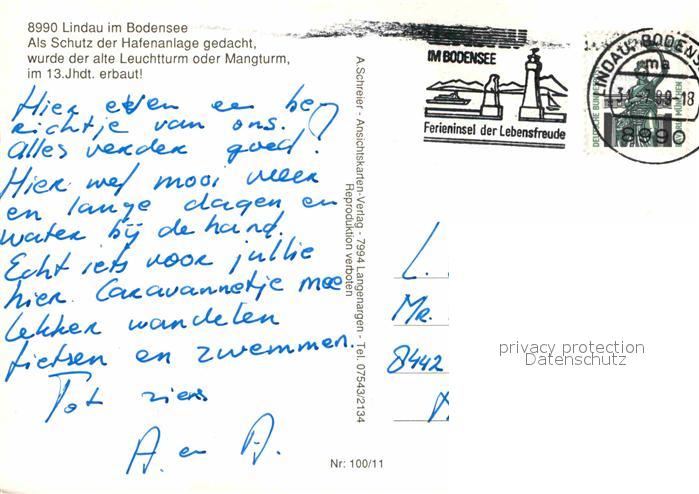 8990 Lindau im Bodensee
Als Schutz der Hafenanlage gedacht,
wurde der alte Leuchtturm oder Mangturm,
im 13.Jhdt. erbaut!
Hier even een be-
richtje van ons.
Alles verder goed!
Hier wel mooi weer
en lange dagen en
water bij de hand.
Echt iets voor jullie
hier. Caravannetje mee
lekker wandelen
fietsen en zwemmen.
Tot ziens
A. en A.
A.Schreier - Ansichtskarten-Verlag - 7994 Langenargen - Tel. 07543/2134
Reproduktion verboten
Nr: 100/11
IM BODENSEE
Ferieninsel der Lebensfreude
LINDAU, BODENS
ma
-18
8990
DEUTSCHE BUNDES
MÜNCHEN
L.
Mr.
8442
privacy protection
Datenschutz